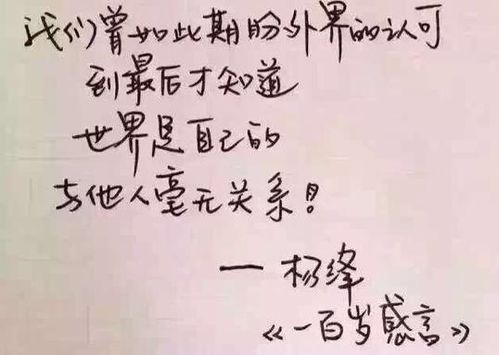 我们曾如此期盼外界的认可
到最后才知道
世界是自己的
与他人毫无关系！
— 杨绛
《一百岁感言》